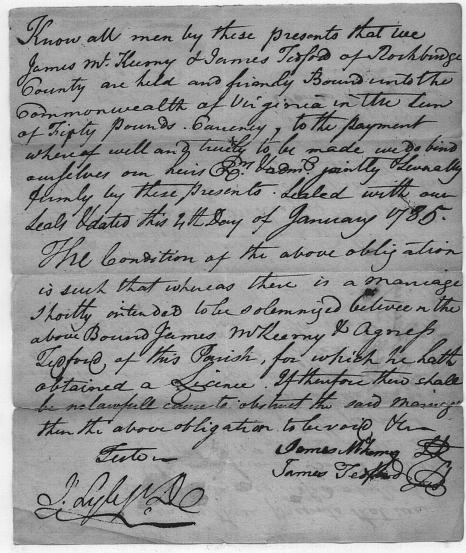 Know all men by these presents that we
James Mc Keemy & James Tedford of Rockbridge
County are held and firmly Bound unto the
Commonwealth of Virginia in the Sum
of Fifty Pounds Currency, to the payment
whereof well and truely to be made we do bind
ourselves our heirs Exrs & adms jointly & severally
firmly by these presents. Sealed with our
Seals & dated this 4th Day of January 1785.
The Condition of the above obligation
is such that whereas there is a marriage
shortly intended to be solemnized between the
above Bound James McKeemy & Agness
Tedford of this Parish, for which he hath
obtained a Licence. If therefore there shall
be no lawfull cause to obstruct the said marriage
then the above obligation to be void &c
Teste
James McKeemy
James Tedford
J. Lyle Jr. DC